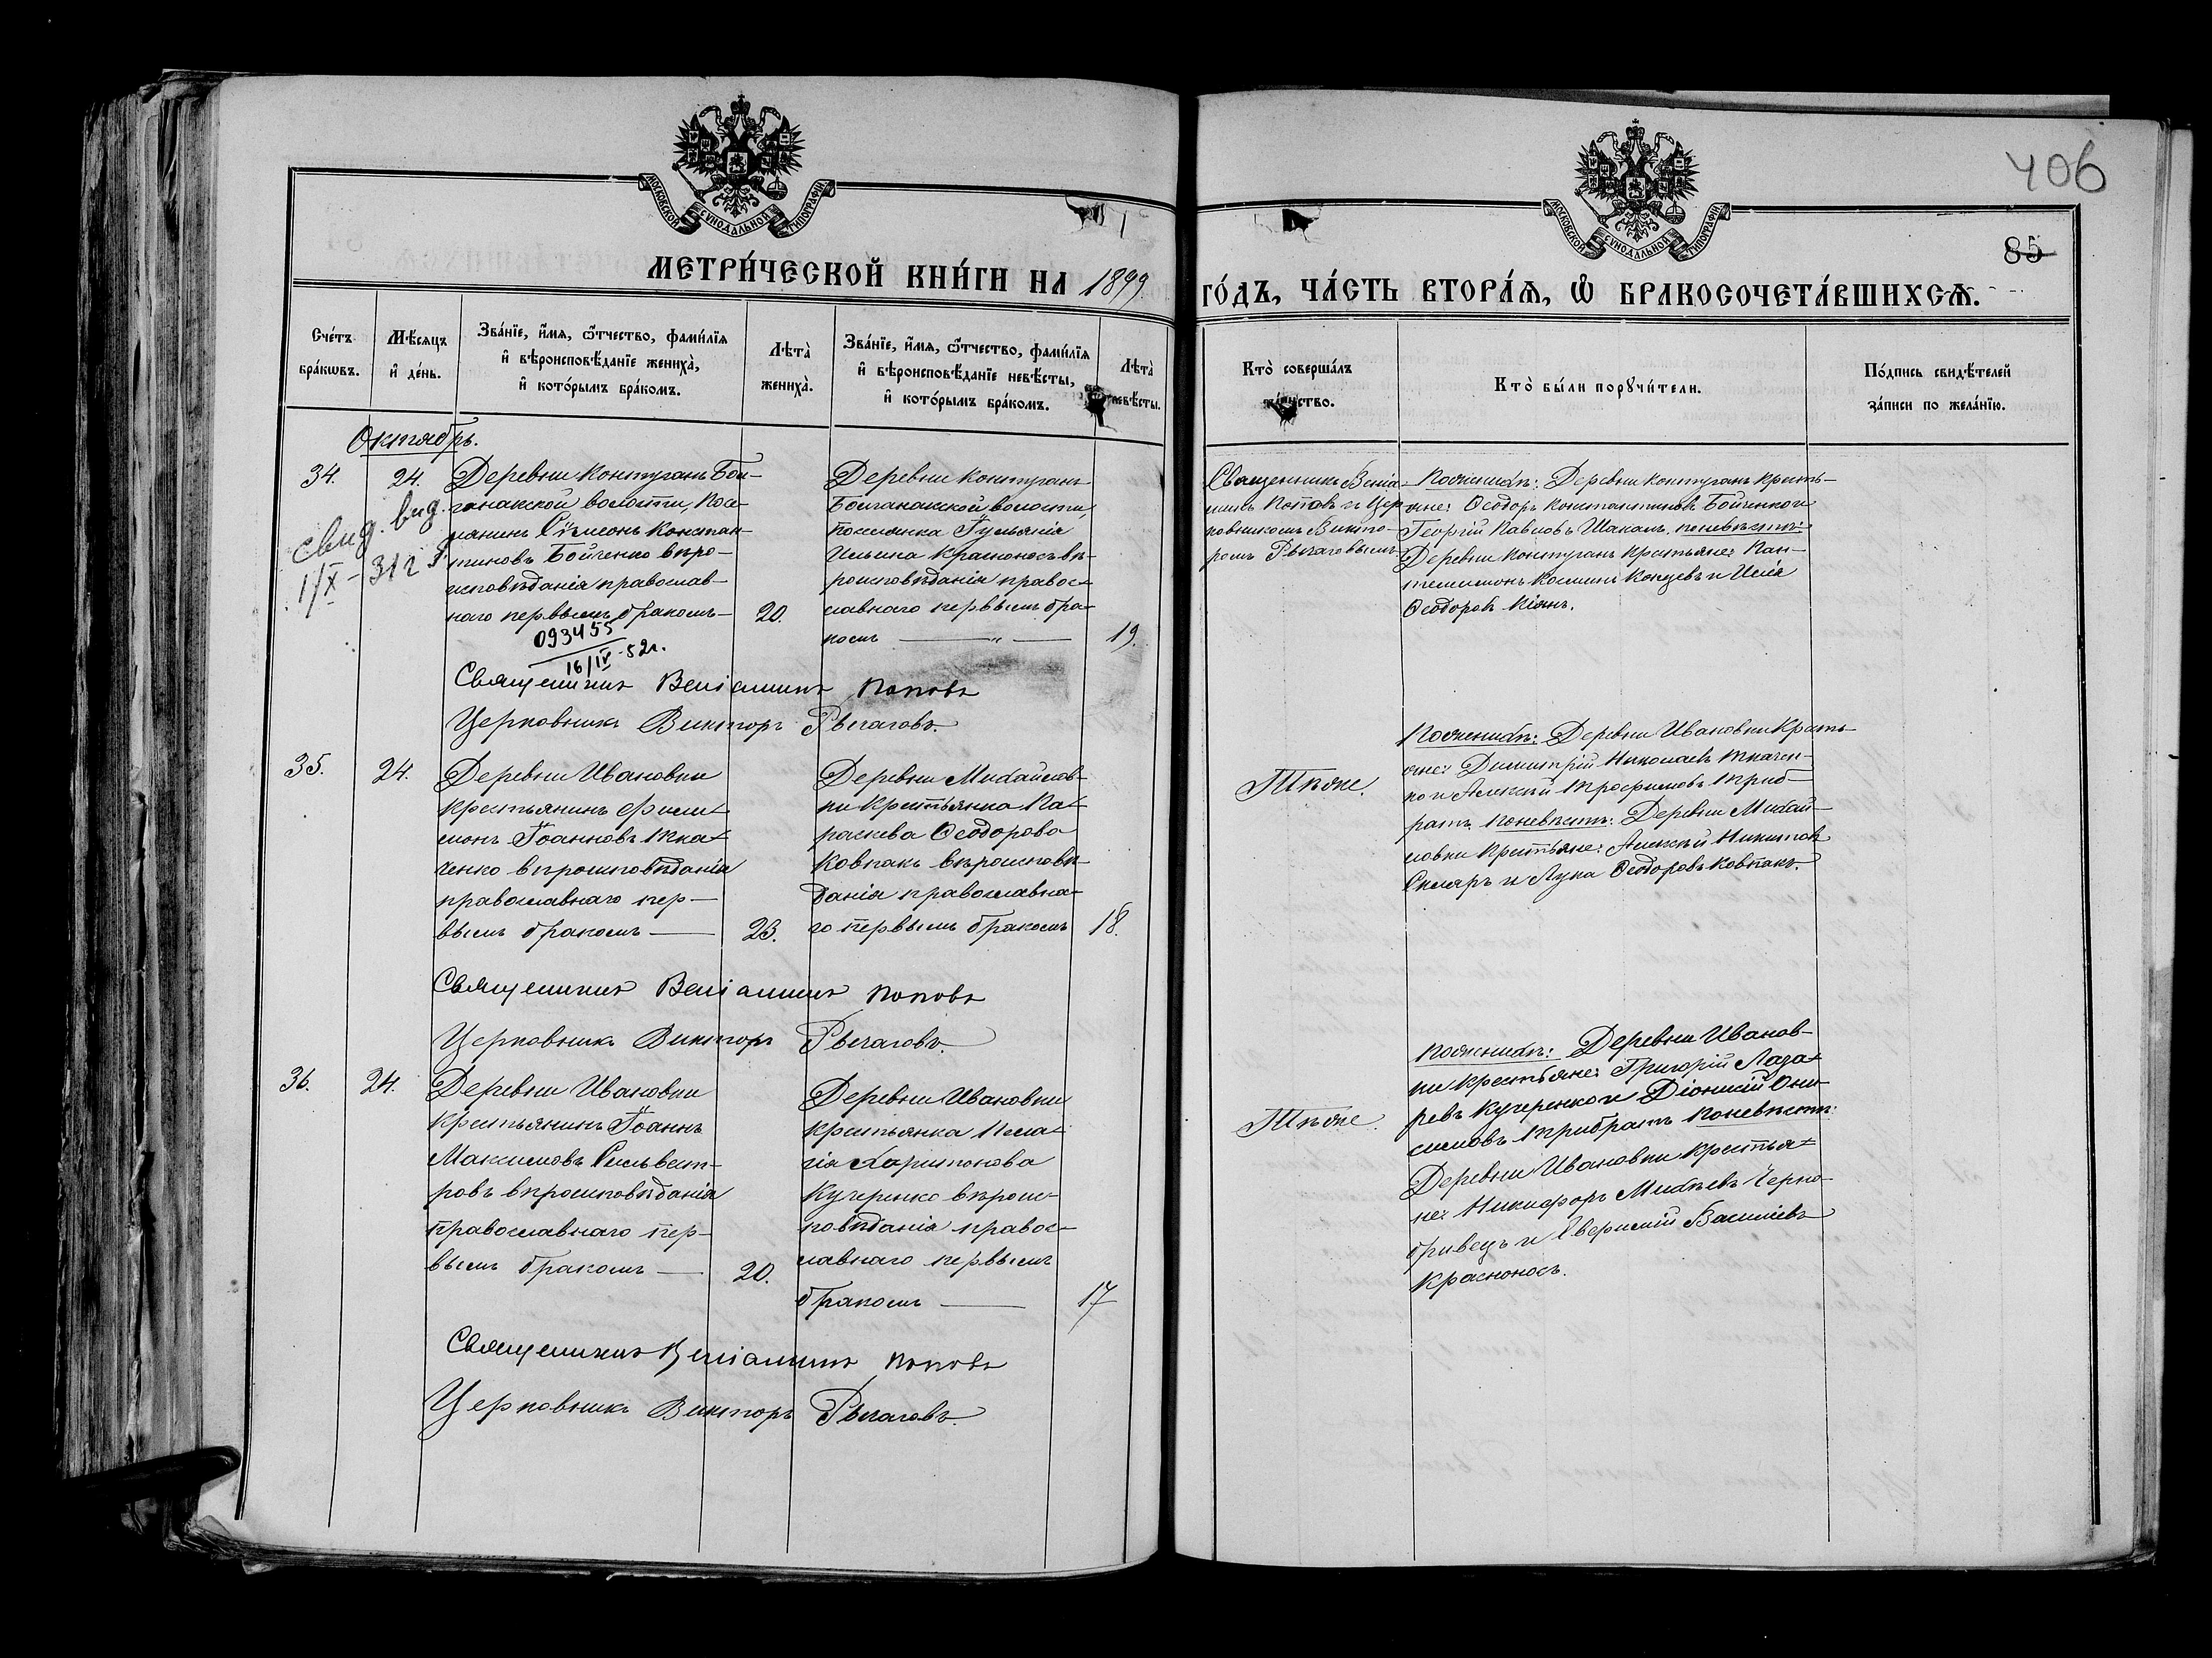 406
85
МОСКОВСКОЙ СѴНОДАЛЬНОЙ ТИПОГРАФІИ
МОСКОВСКОЙ СѴНОДАЛЬНОЙ ТИПОГРАФІИ
МЕТРИ́ЧЕСКОЙ КНИ́ГИ НА 1899
ГО́ДЪ, ЧА́СТЬ ВТОРА́Я, Ѡ БРАКОСОЧЕТА́ВШИХСЯ.
Сче́тъ бра́кѡвъ.
Мѣ́сяцъ и҆ де́нь.
Зва́нїе, и҆́мя, ѻ҆́тчество, фами́лїя
и҆ вѣроисповѣ́данїе жениха̀,
и҆ кото́рымъ бра́комъ.
Лѣта̀ жениха̀.
Зва́нїе, и҆́мя, ѻ҆́тчество, фами́лїя
и҆ вѣроисповѣ́данїе невѣ́сты,
и҆ кото́рымъ бра́комъ.
Лѣта̀ невѣ́сты.
Кто̀ соверша́лъ
та́инство.
Кто̀ бы́ли порꙋчи́тели.
По́дпись свидѣ́телей
за́писи по жела́нїю.
Октябрь.
34.
24.
свид. выд.
Деревни Контуганъ Бол-
ганакской волости, Посе-
лянинъ Сѵмеонъ Констан-
тиновъ Бойченко вѣро-
исповѣданія православ-
наго первымъ бракомъ
20.
093455
16/IV-52г.
Деревни Контуганъ
Болганакской волости,
поселянка Іульянія
Ильина Красноносъ вѣ-
роисповѣданія правос-
лавнаго первымъ бра-
комъ
19.
Священникъ Веніа-
минъ Поповъ и Цер-
ковникомъ Викто-
ромъ Рычаговымъ.
По женихѣ: Деревни Контуганъ кресть-
яне: Ѳеодоръ Константиновъ Бойченко и
Георгій Павловъ Шакалъ, по невѣстѣ:
Деревни Контуганъ крестьяне: Пан-
телеимонъ Косминъ Концевъ и Илія
Ѳеодоровъ Кіянъ.
Священникъ Веніаминъ Поповъ
Церковникъ Викторъ Рычаговъ.
35.
24.
Деревни Ивановки
крестьянинъ Фили-
монъ Іоанновъ Тка-
ченко вѣроисповѣданія
православнаго пер-
вымъ бракомъ
23.
Деревни Михайлов-
ки крестьянка Па-
раскева Ѳеодорова
Ковпакъ вѣроисповѣ-
данія православна-
го первымъ бракомъ
18.
Тѣже.
По женихѣ: Деревни Ивановки кресть-
яне: Димитрій Николаевъ Ткачен-
ко и Алексій Трофимовъ Триб-
ратъ по невѣстѣ: Деревни Михай-
ловки крестьяне: Алексій Никитовъ
Скляръ и Лука Ѳеодоровъ Ковпакъ.
Священникъ Веніаминъ Поповъ
Церковникъ Викторъ Рычаговъ.
36.
24.
Деревни Ивановки
крестьянинъ Іоаннъ
Максимовъ Сильвест-
ровъ вѣроисповѣданія
православнаго пер-
вымъ бракомъ
20.
Деревни Ивановки
крестьянка Пела-
гія Харитонова
Кучеренко вѣроис-
повѣданія правос-
лавнаго первымъ
бракомъ
17
Тѣже.
По женихѣ: Деревни Иванов-
ки крестьяне: Григорій Лаза-
ревъ Кучеренко и Діонисій Они-
симовъ Трибратъ по невѣстѣ:
Деревни Ивановки крестья-
не: Никифоръ Михѣевъ Черно-
бривецъ и Аверкій Василіевъ
Краснонос.
Священникъ Веніаминъ Поповъ
Церковникъ Викторъ Рычаговъ.